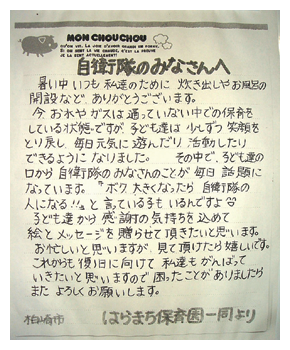 MON CHOUCHOU
自衛隊のみなさんへ
暑い中 いつも 私達のために 炊き出しや お風呂の
開設など、ありがとうございます。
今、お水や ガスは 通っていない中での保育を
している状態ですが、子ども達は 少しずつ 笑顔を
とり戻し、毎日元気に 遊んだり 活動したり
できるように なりました。 その中で、子ども達の
口から 自衛隊のみなさんのことが 毎日 話題に
なっています。 "ボク 大きくなったら 自衛隊の
人になる!!"と 言っている子も いるんですよ
子ども達から 感謝の 気持ちを 込めて
絵と メッセージを 贈らせて 頂きたいと思います。
お忙しいと 思いますが、見て頂けたら嬉しいです。
これからも 復旧に向けて 私達も がんばって
いきたいと思いますので 困ったことがありましたら
また よろしくお願いします。
柏崎市 はらまち保育園一同より